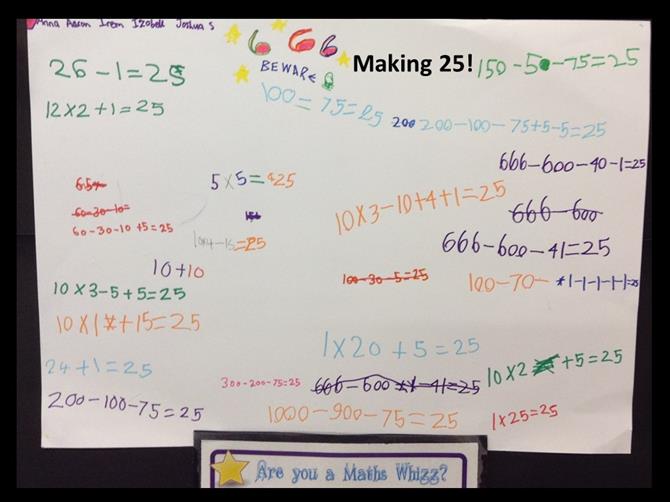 Anna Aaron Irem Izobell Joshua S
666
BEWARE
Making 25!
150-50-75=25
26-1=25
12x2+1=25
100=75=25
200 200-100-75+5-5=25
666-600-40-1=25
65
5x5=25
60-30-10=
60-30-10+5=25
10x3-10+4+1=25
666-600
10x4-15=25
666-600-41=25
10+10
100-30-5=25
100-70- *1-1-1-1-1=25
10x3-5+5=25
10x1+15=25
1x20+5=25
24+1=25
300-200-75=25
666-600-41=25
10x2+5=25
200-100-75=25
1000-900-75=25
1x25=25
Are you a Maths Whizz?